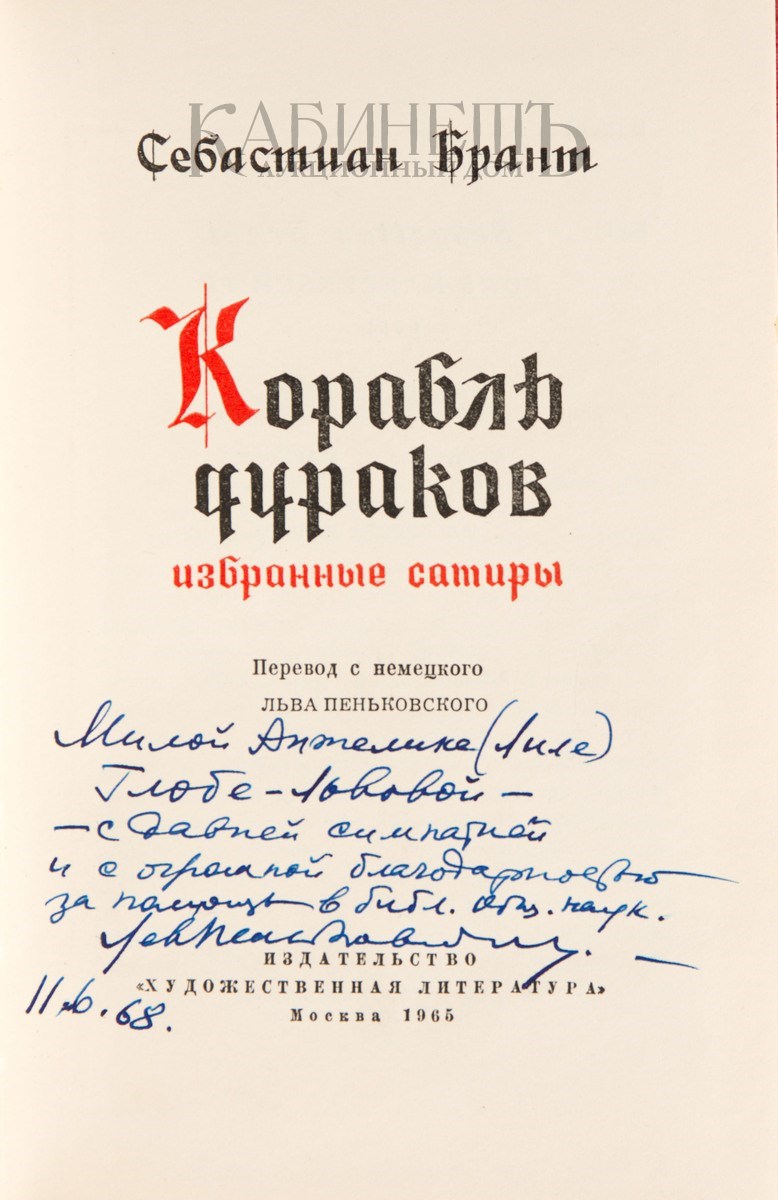 КАБИНЕТЪ
АУКЦИОННЫЙ ДОМ
Себастиан Брант
Корабль
дураков
избранные сатиры
Перевод с немецкого
ЛЬВА ПЕНЬКОВСКОГО
Милой Анжелике (Лиле)
Глобе-Львовой –
– с давней симпатией
и с огромной благодарностью
за помощь в библ. общ. наук.
Лев Пеньковский. –
ИЗДАТЕЛЬСТВО
«ХУДОЖЕСТВЕННАЯ ЛИТЕРАТУРА»
Москва 1965
11.6.68.